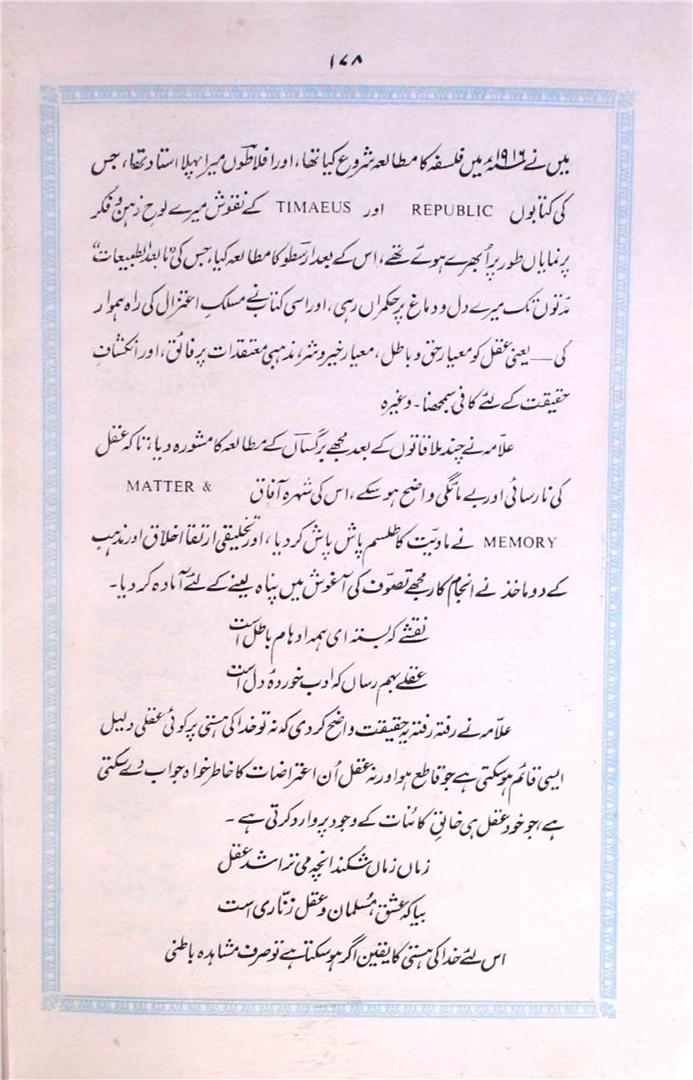 ۱۷۸
میں نے ۱۹۱۶ء میں فلسفہ کا مطالعہ شروع کیا تھا، اور افلاطوں میرا پہلا استاد تھا، جس
کی کتابوں REPUBLIC اور TIMAEUS کے نقوش میرے لوحِ ذہن و فکر
پر نمایاں طور پر اُبھرے ہوئے تھے، اس کے بعد ارسطو کا مطالعہ کیا، جس کی ”مابعد الطبیعات“
مدّتوں تک میرے دل و دماغ پر حکمراں رہی، اور اسی کتاب نے مسلکِ اعتزال کی راہ ہموار
کی — یعنی عقل کو معیارِ حق و باطل، معیارِ خیر و شر، مذہبی معتقدات پر فائق، اور انکشافِ
حقیقت کے لئے کافی سمجھنا۔ وغیرہ
علاّمہ نے چند ملاقاتوں کے بعد مجھے برگساں کے مطالعہ کا مشورہ دیا، تاکہ عقل
کی نارسائی اور بے مائگی واضح ہو سکے، اس کی شہرہ آفاق MATTER &
MEMORY نے مادیّت کا طلسم پاش پاش کر دیا، اور تخلیقی ارتقا اخلاق اور مذہب
کے دو ماخذ نے انجام کار مجھے تصوّف کی آغوش میں پناہ لینے کے لئے آمادہ کر دیا۔
نقشے کہ بستہ ای ہمہ اوہام باطل است
عقلے بہم رساں کہ ادب خوردۂ دل است
علاّمہ نے رفتہ رفتہ یہ حقیقت واضح کر دی کہ نہ تو خدا کی ہستی پر کوئی عقلی دلیل
ایسی قائم ہو سکتی ہے جو قاطع ہو اور نہ عقل اُن اعتراضات کا خاطر خواہ جواب دے سکتی
ہے، جو خود عقل ہی خالقِ کائنات کے وجود پر وارد کرتی ہے۔
زماں زماں شکند انچہ می تراشد عقل
بیا کہ عشق مُسلمان و عقل زنّاری است
اس لئے خدا کی ہستی کا یقین اگر ہو سکتا ہے تو صرف مشاہدہ باطنی